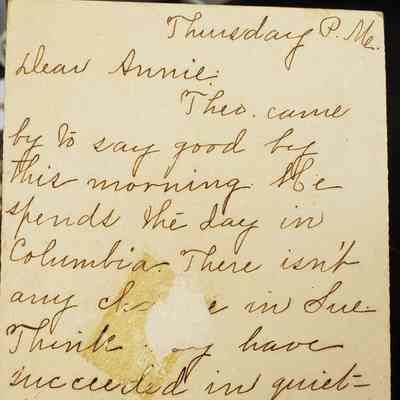 Thursday P. M.
Dear Annie:
Theo. came
by to say good by
this morning. He
spends the day in
Columbia. There isn't
any in Sue.
Think have
succeeded in quiet-